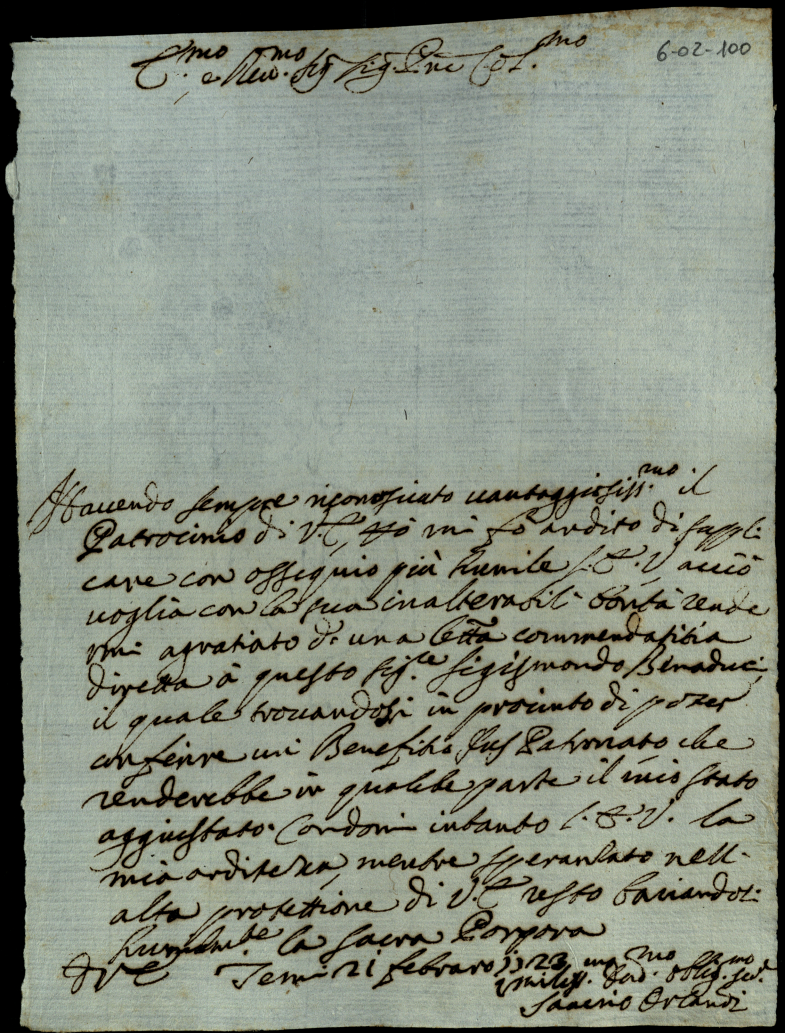 6-02-100
E.mo e Rev.mo Sig.r Sig.r P.ne Col.mo
Havendo sempre riconosciuto vantaggiosiss.mo il
Patrocinio di V.E. mi fò ardito di suppli
care con ossequio più humile l'E.V. acciò
voglia con la sua inalterabil bontà rende
rmi agratiato di una lettã commendatitia
diretta à questo Sig.re Sigismondo Benaduci,
il quale trovandosi in procinto di poter
conferire un Benefitio Jus Patronato che
renderebbe in qualche parte il mio stato
aggiustato. Condoni intanto l'E.V. la
mia arditezza, mentre speranzato nell'
alta protettione di V.E. resto baciandoli
humilmte la Sacra Porpora
D.V.E. Jesi 21 febraro 1723
Umiliss.mo Dev.mo Oblig.mo Ser.
Saverio Orlandi